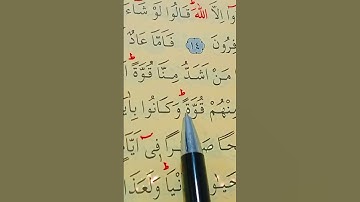 وا اِلَّا اللّٰهَ قَالُوا لَوْ شَٓاءَ
فِرُونَ ١٤ فَاَمَّا عَادٌ
مَنْ اَشَدُّ مِنَّا قُوَّةً
مِنْهُمْ قُوَّةً وَكَانُوا بِاٰيَا
حًا صَرْ رًا فٖٓى اَيَّا
نْيَا وَلَعَذَا